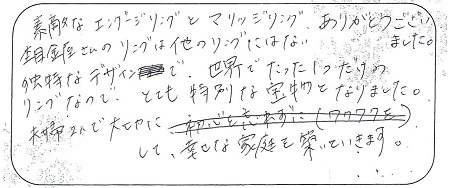 素敵なエンゲージリングとマリッジリング、ありがとうござい
ました。
杢目金屋さんのリングは他のリングにはない
独特なデザインで、世界でたった1つだけの
リングなので、とても特別な宝物となりました。
夫婦2人で大切に
して、幸せな家庭を築いていきます。